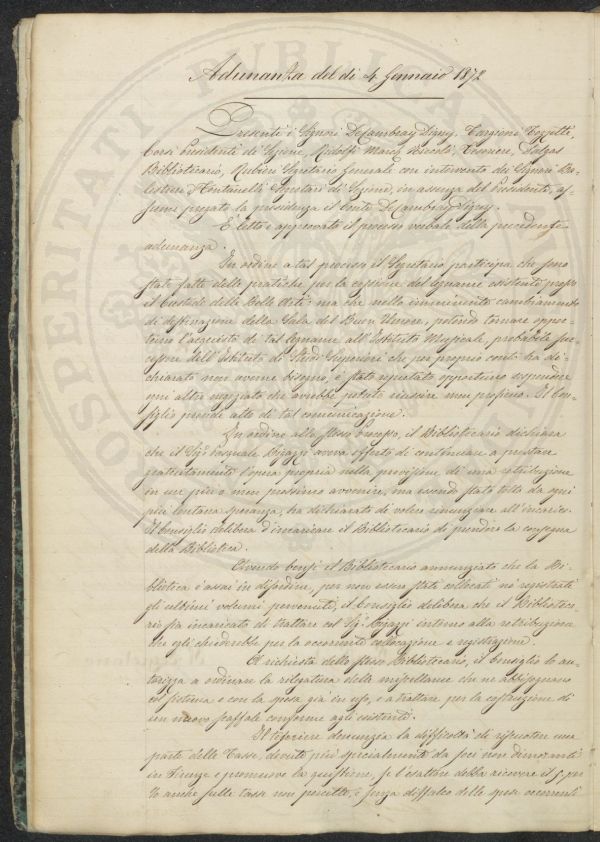 Adunanza del dì 4 Gennaio 1872
Presenti i Signori De Cambray Digny, Targioni Tozzetti,
Corsi Presidenti di Sezione, Ridolfi March. Niccolò, Tesoriere, Dalgas
Bibliotecario, Rubieri Segretario Generale con intervento dei Signori Ba-
lestreri e Fontanelli Segretari di Sezione, in assenza del Presidente, as-
sume pregato la presidenza il Conte De Cambray Digny.
È letto e approvato il processo verbale della precedente
adunanza.
In ordine a tal processo il Segretario partecipa che sono
state fatte delle pratiche per la cessione del legname esistente presso
il Custode delle Belle Arti: ma che nella imminente cambiamento
di destinazione della Sala del Buon Umore, potendo tornare oppor-
tuno l'acquisto di tal legname all'Istituto Musicale, probabile suc-
cessore dell'Istituto di Studi Superiori che per proprio conto ha di-
chiarato non averne bisogno, è stato reputato opportuno sospendere
ogni altro negoziato che avrebbe potuto riuscire men proficuo. Il Con-
siglio prende atto di tal comunicazione.
In ordine allo stesso processo, il Bibliotecario dichiara
che il Sigr. Pasquale Bigazzi aveva offerto di continuare a prestare
gratuitamente l'opera propria nella previsione di una retribuzione
in un più o men prossimo avvenire, ma essendo stata tolta da ogni
più lontana speranza, ha dichiarato di volere rinunziare all'incarico.
Il Consiglio delibera d'incaricare il Bibliotecario di prendere la consegna
della Biblioteca.
Avendo bensì il Bibliotecario annunziato che la Bi-
blioteca è assai in disordine, per non essere stati collocati né registrati
gli ultimi volumi pervenuti, il Consiglio delibera che il Biblioteca-
rio sia incaricato di trattare col Sig. Bigazzi intorno alla retribuzione
che egli chiederebbe per la occorrente collocazione e registrazione.
A richiesta dello stesso Bibliotecario, il Consiglio lo au-
torizza a ordinare la rilegatura delle miscellanee che ne abbisognano
col sistema e con la spesa già in uso, e a trattare per la costruzione di
un nuovo scaffale conforme agli esistenti.
Il tesoriere denunzia la difficoltà di riscuotere una
parte delle Tasse, dovute più specialmente da soci non dimoranti
in Firenze e promuove la questione, se l'esattore debba ricevere il 5 per
% anche sulle tasse non percette, e senza diffalco delle spese occorrenti